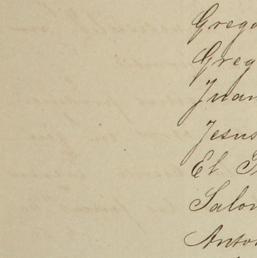 Grego
Greg
Juan
Jesus
El
Salo
Anton